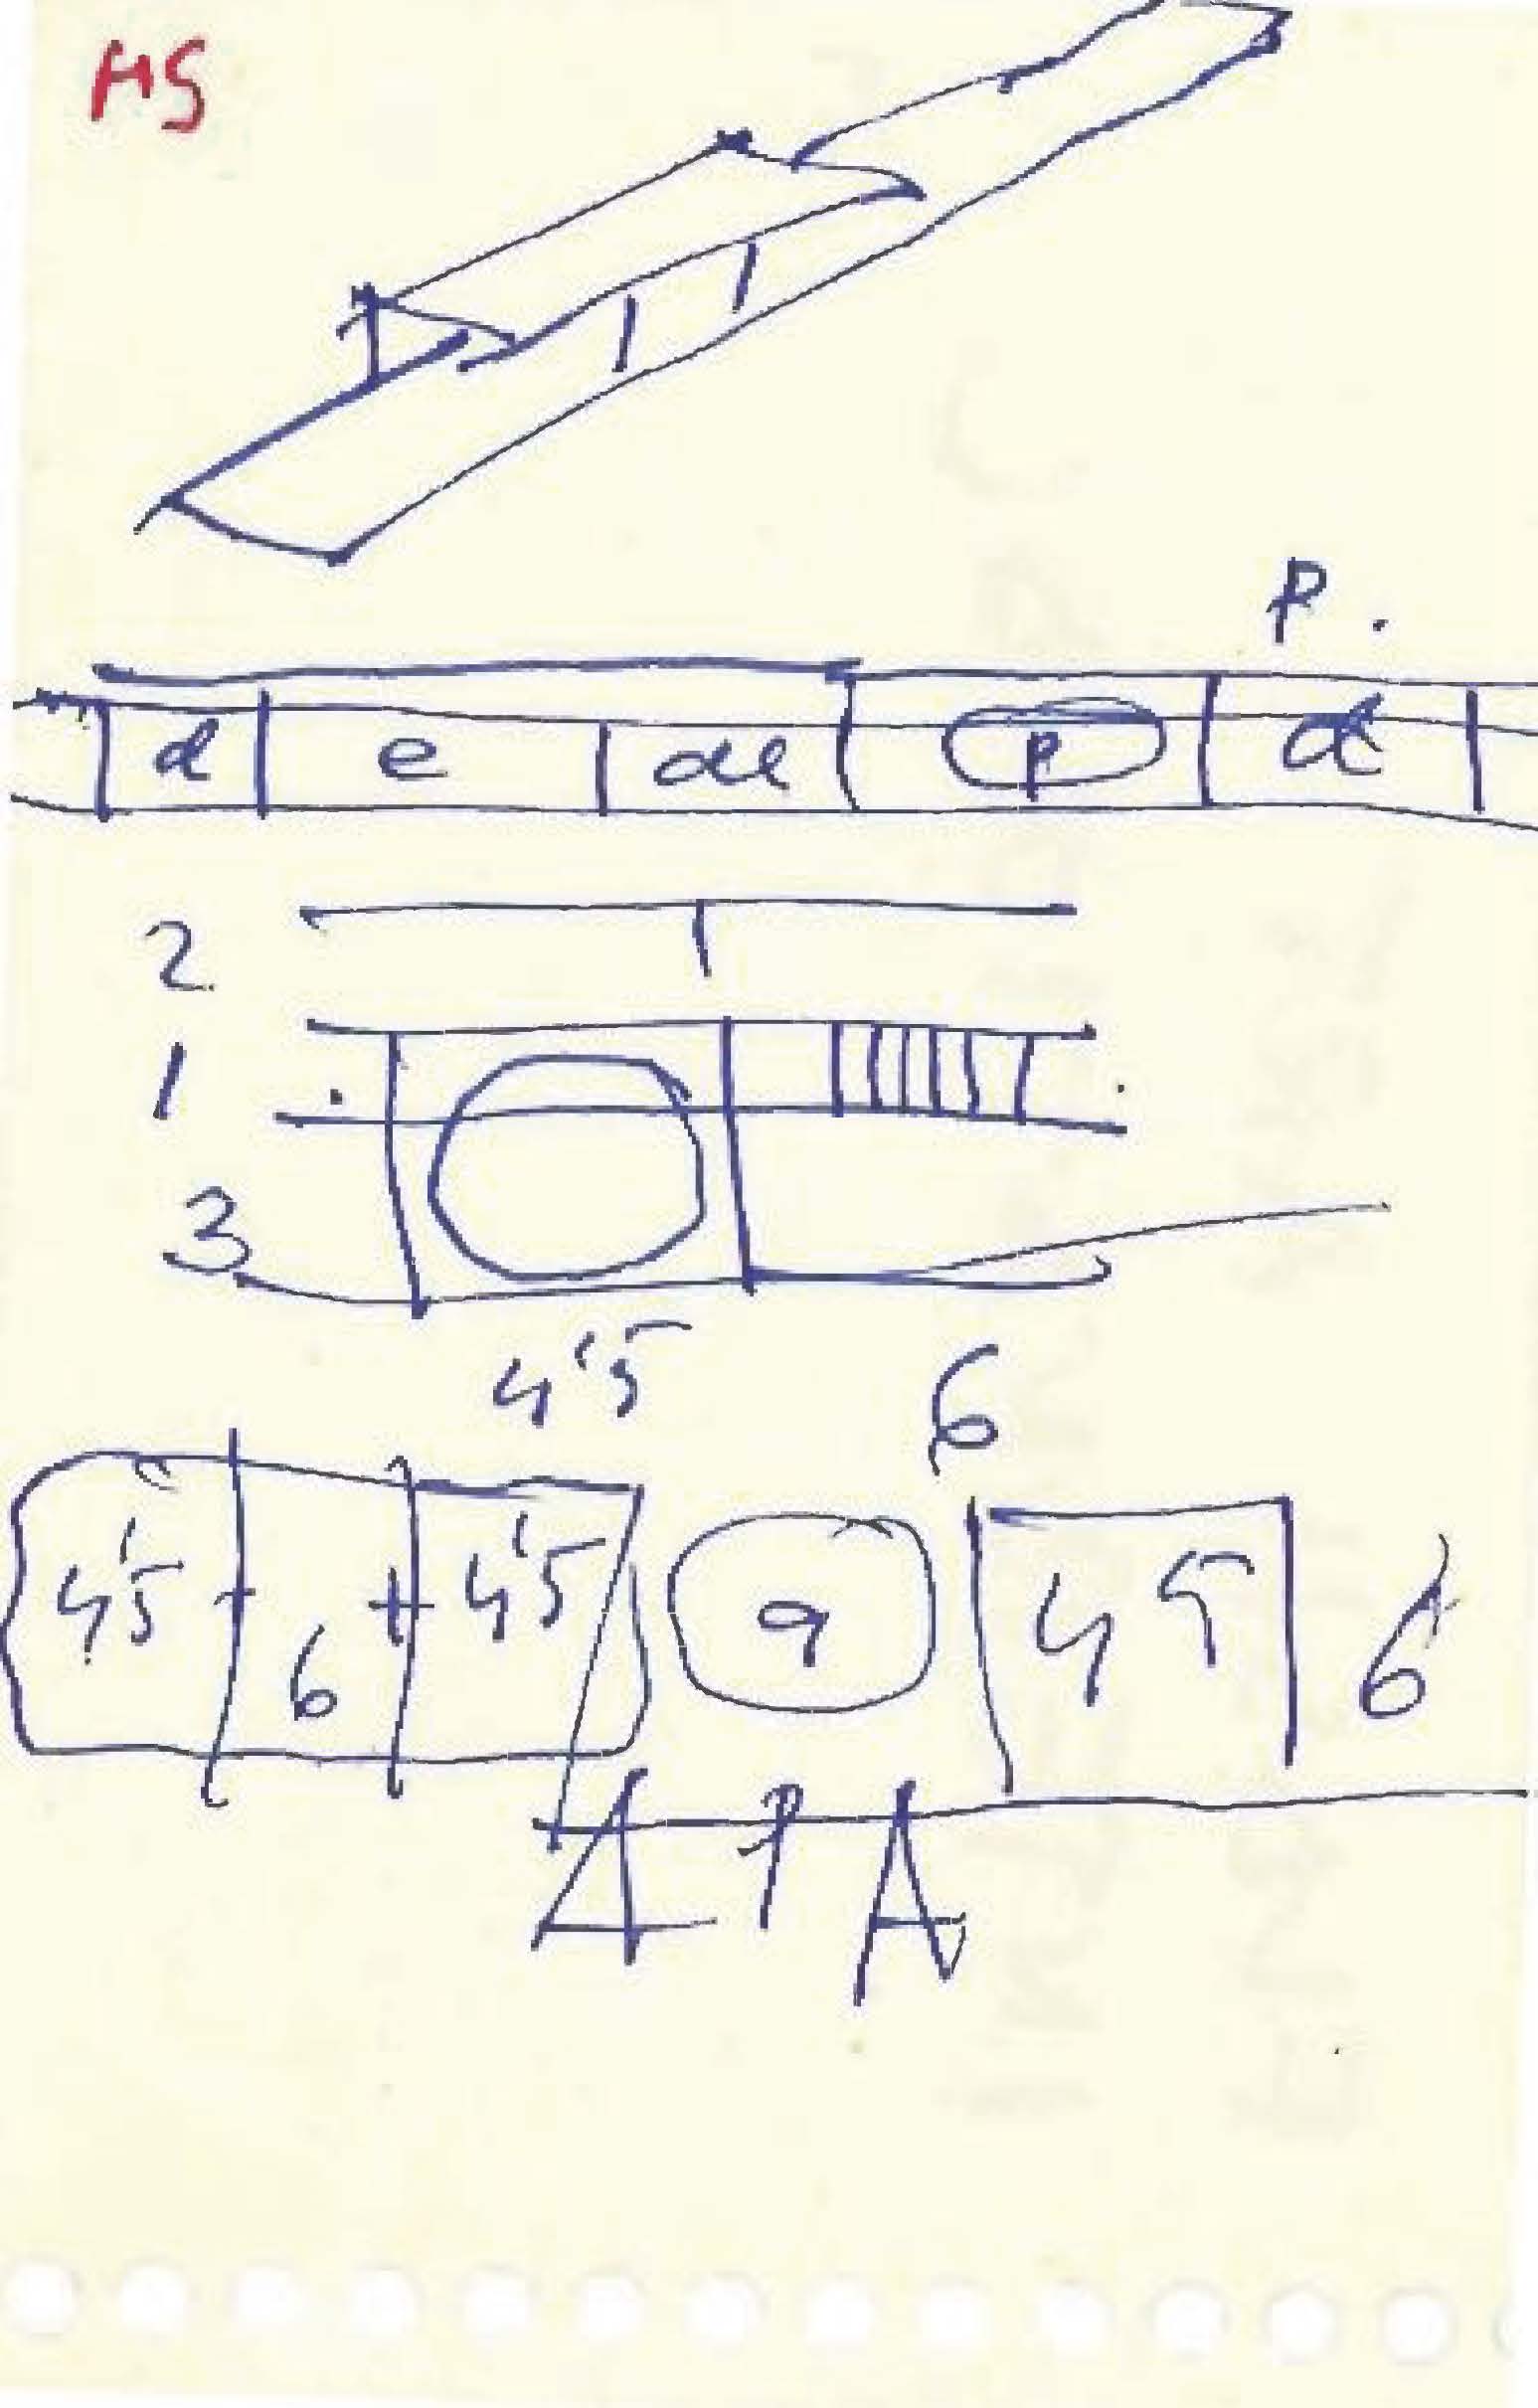 MS
P.
d e de p d
2
1
3
4'5 6
4'5 6 4'5 a 45 6
A P A